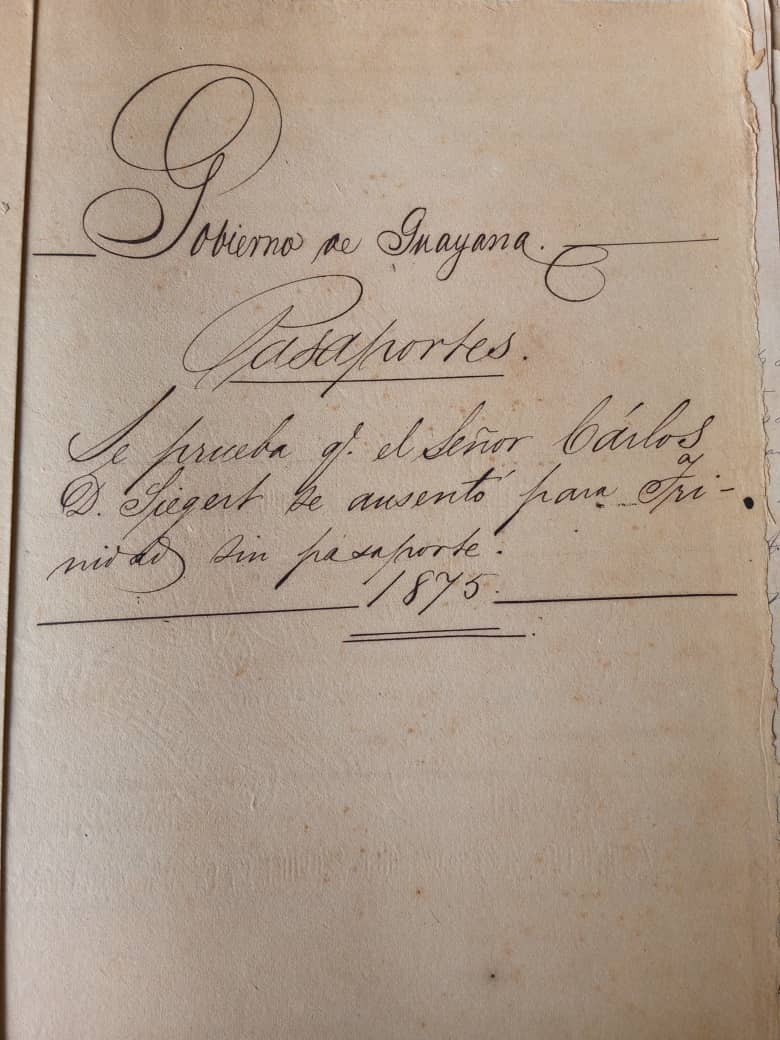 Gobierno de Guayana.
Pasaportes.
Se prueba q. el Señor Cárlos
D. Siegert se ausentó para Tri-
nidad sin pasaporte.
1875.